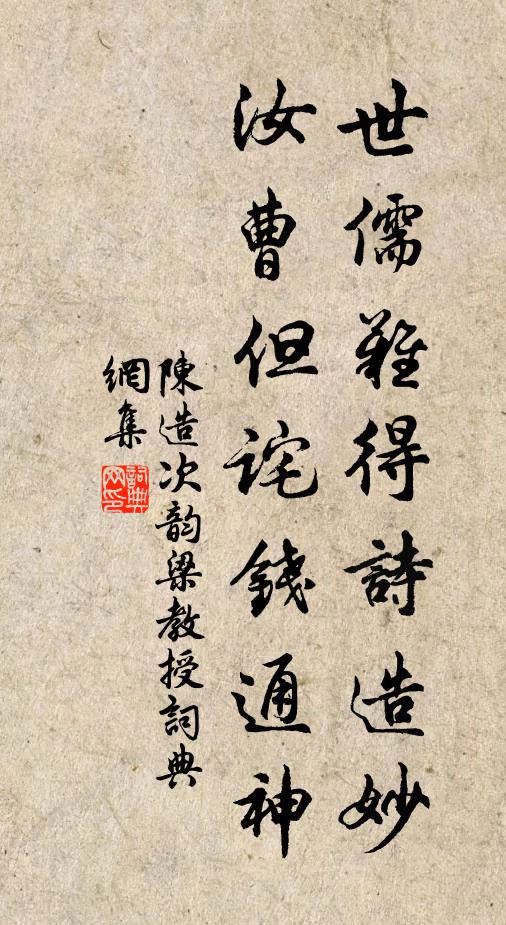 世儒難得詩造妙
汝曹但詫錢通神
陳造次韵梁教授詞典
網集
詞典网印